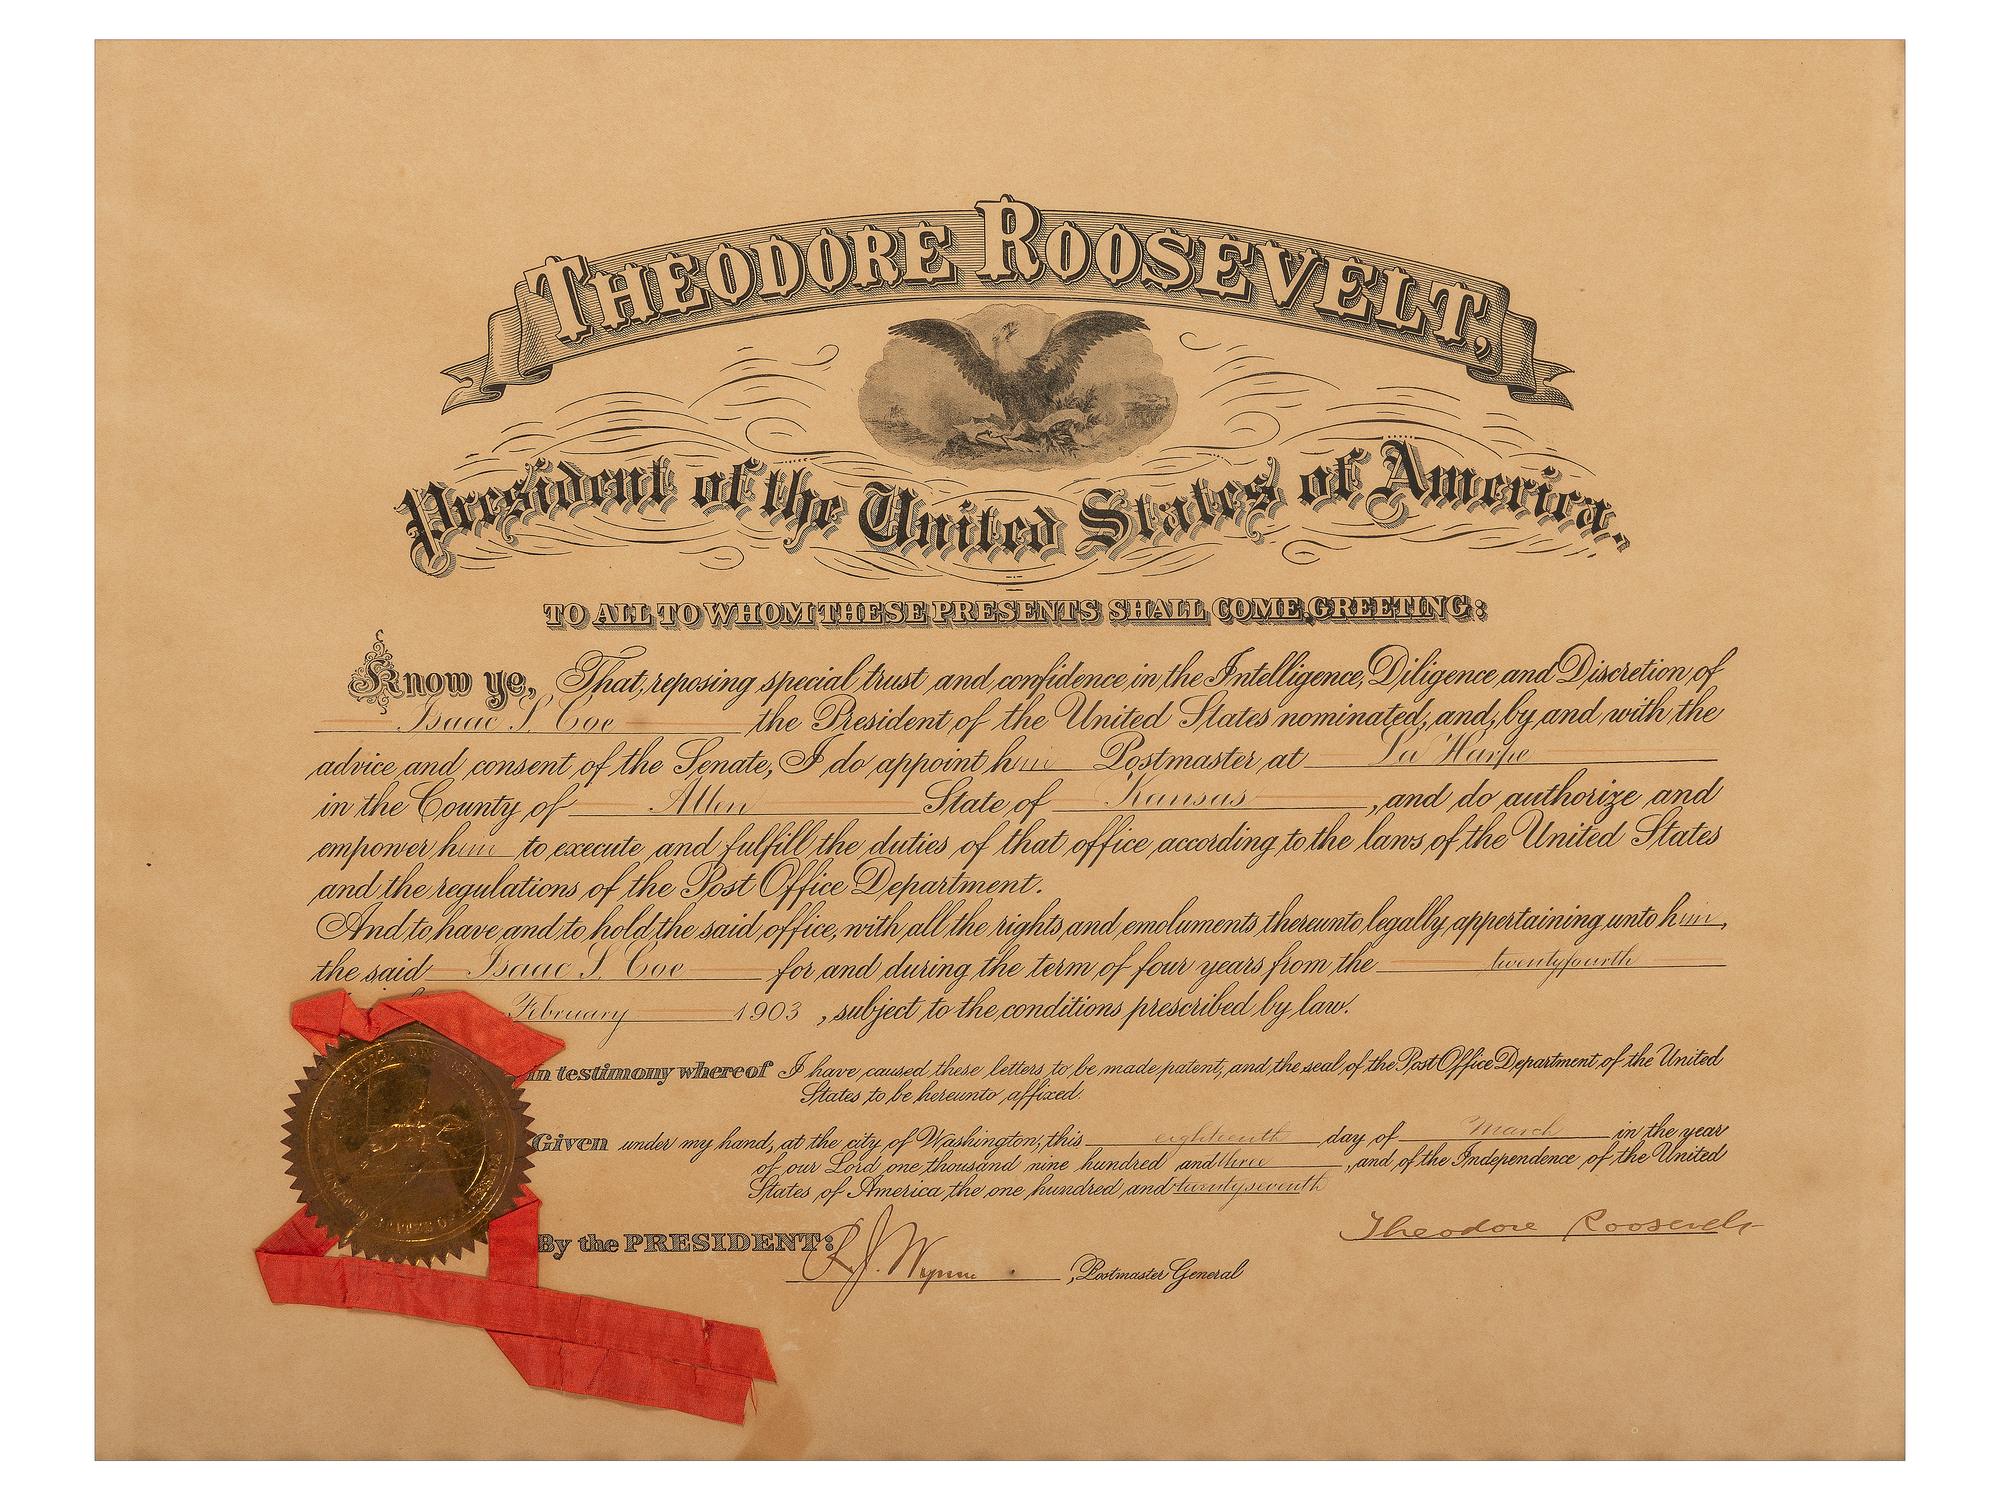 THEODORE ROOSEVELT,
President of the United States of America.
TO ALL TO WHOM THESE PRESENTS SHALL COME, GREETING:
Know ye, That, reposing special trust and confidence in the Intelligence, Diligence and Discretion of
Isaac S. Coe the President of the United States nominated, and, by and with the
advice and consent of the Senate, I do appoint him Postmaster at La Harpe
in the County of Allen State of Kansas, and do authorize and
empower him to execute and fulfill the duties of that office according to the laws of the United States
and the regulations of the Post Office Department.
And to have and to hold the said office, with all the rights and emoluments thereunto legally appertaining unto him,
the said Isaac S. Coe for and during the term of four years from the twentyfourth
February 1903, subject to the conditions prescribed by law.
In testimony whereof I have caused these letters to be made patent, and the seal of the Post Office Department of the United
States to be hereunto affixed.
Given under my hand, at the city of Washington, this eighteenth day of March in the year
of our Lord one thousand nine hundred and three, and of the Independence of the United
States of America the one hundred and twentyseventh
Theodore Roosevelt
By the PRESIDENT: R. J. Wynne
, Postmaster General